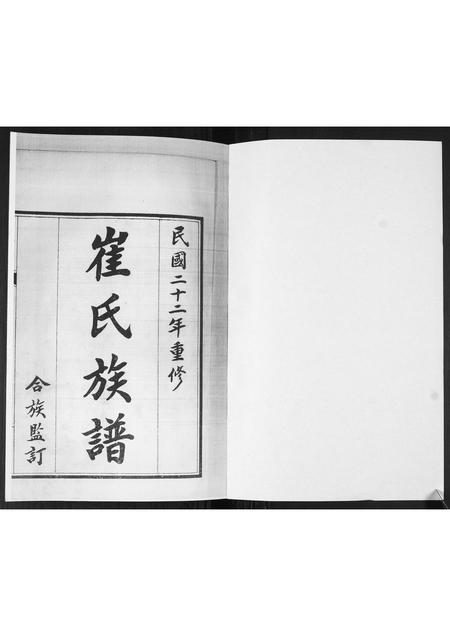 民國二十二年重修
崔氏族譜
合族監訂